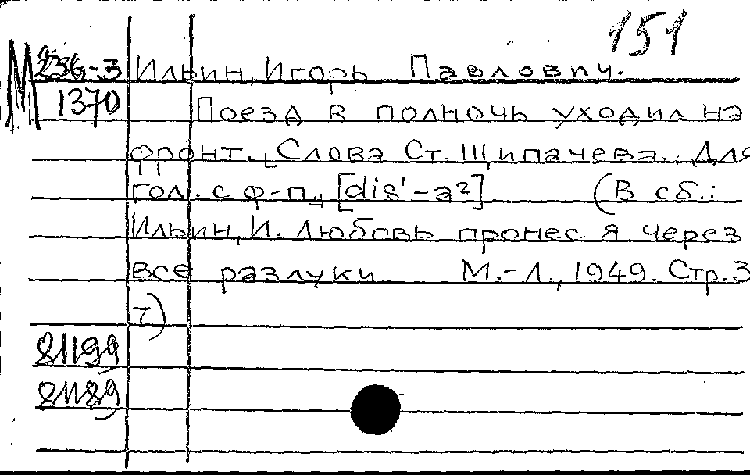 151
М 236-3 Ильин, Игорь Павлович.
1370 Поезд в полночь уходил на
фронт. Слова Ст. Щипачева. Для
гол. с ф-п., [dis'-a²] (В сб.:
Ильин, И. Любовь пронес я через
все разлуки М.-Л., 1949. Стр.3-
7)
81199
81189